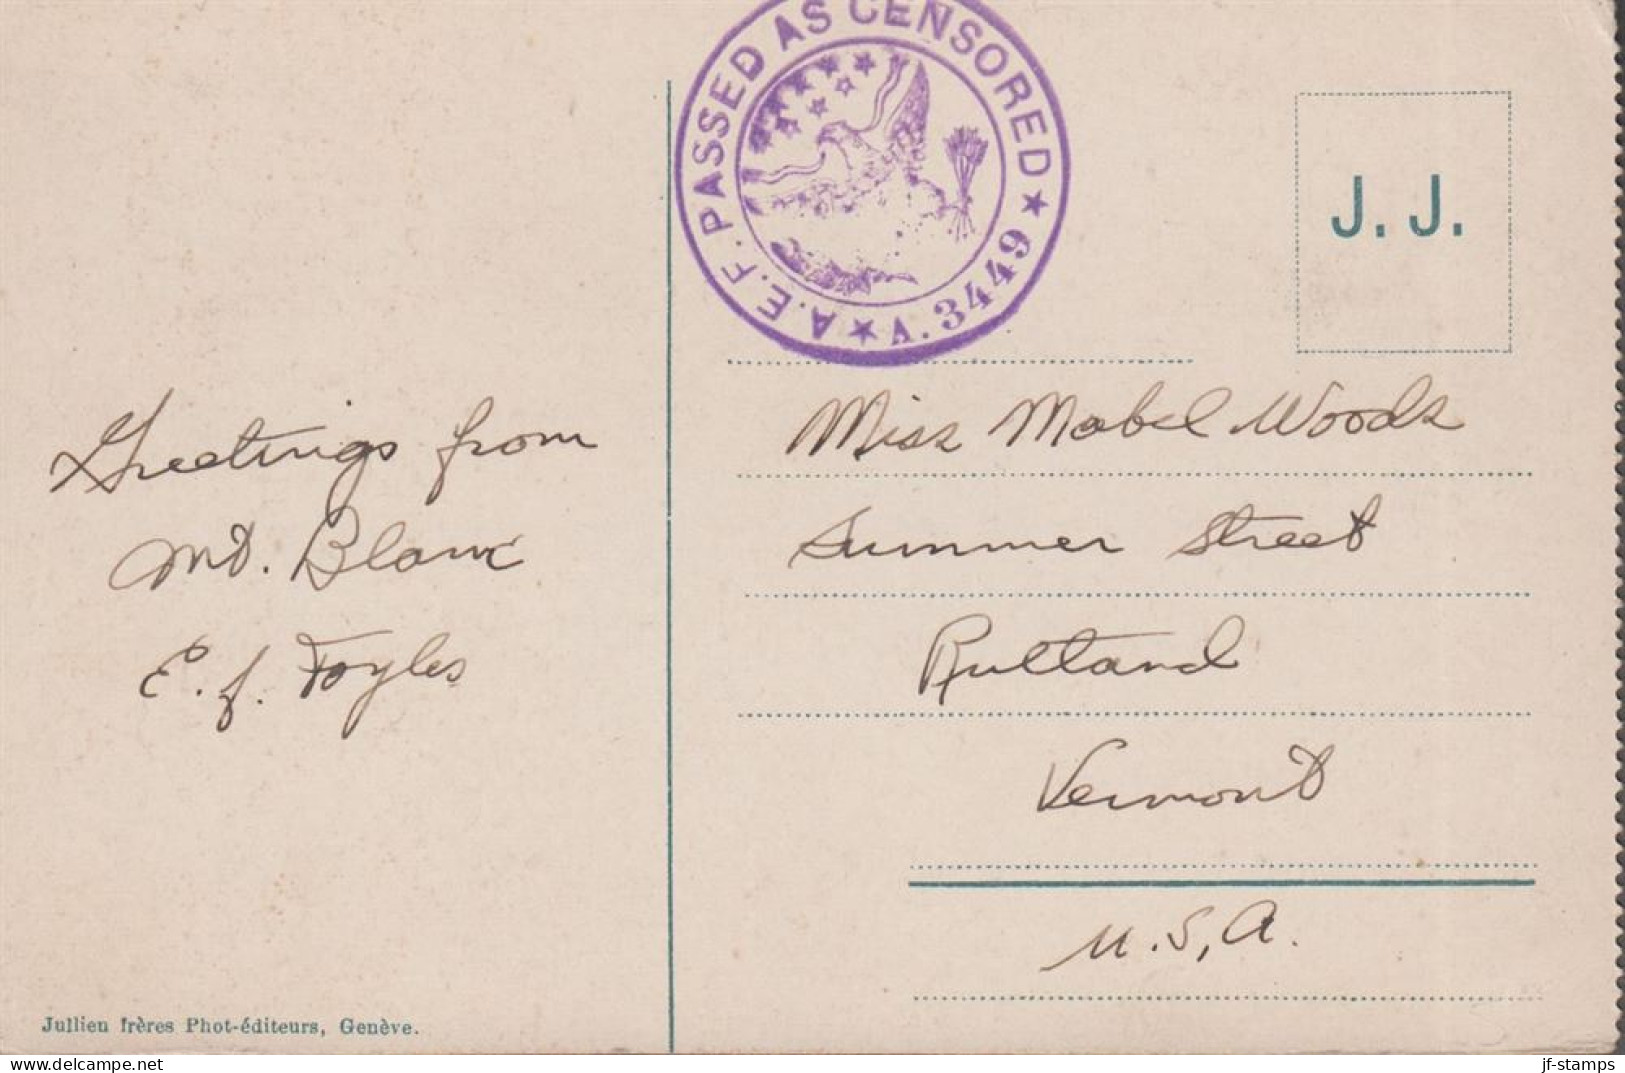 A.E.F. PASSED AS CENSORED
A. 3449
J. J.
Greetings from
Mt. Blanc
E. J. Foyles
Miss Mabel Woods
Summer Street
Rutland
Vermont
U. S, A.
Jullien frères Phot-éditeurs, Genève.
www.delcampe.net
jf-stamps